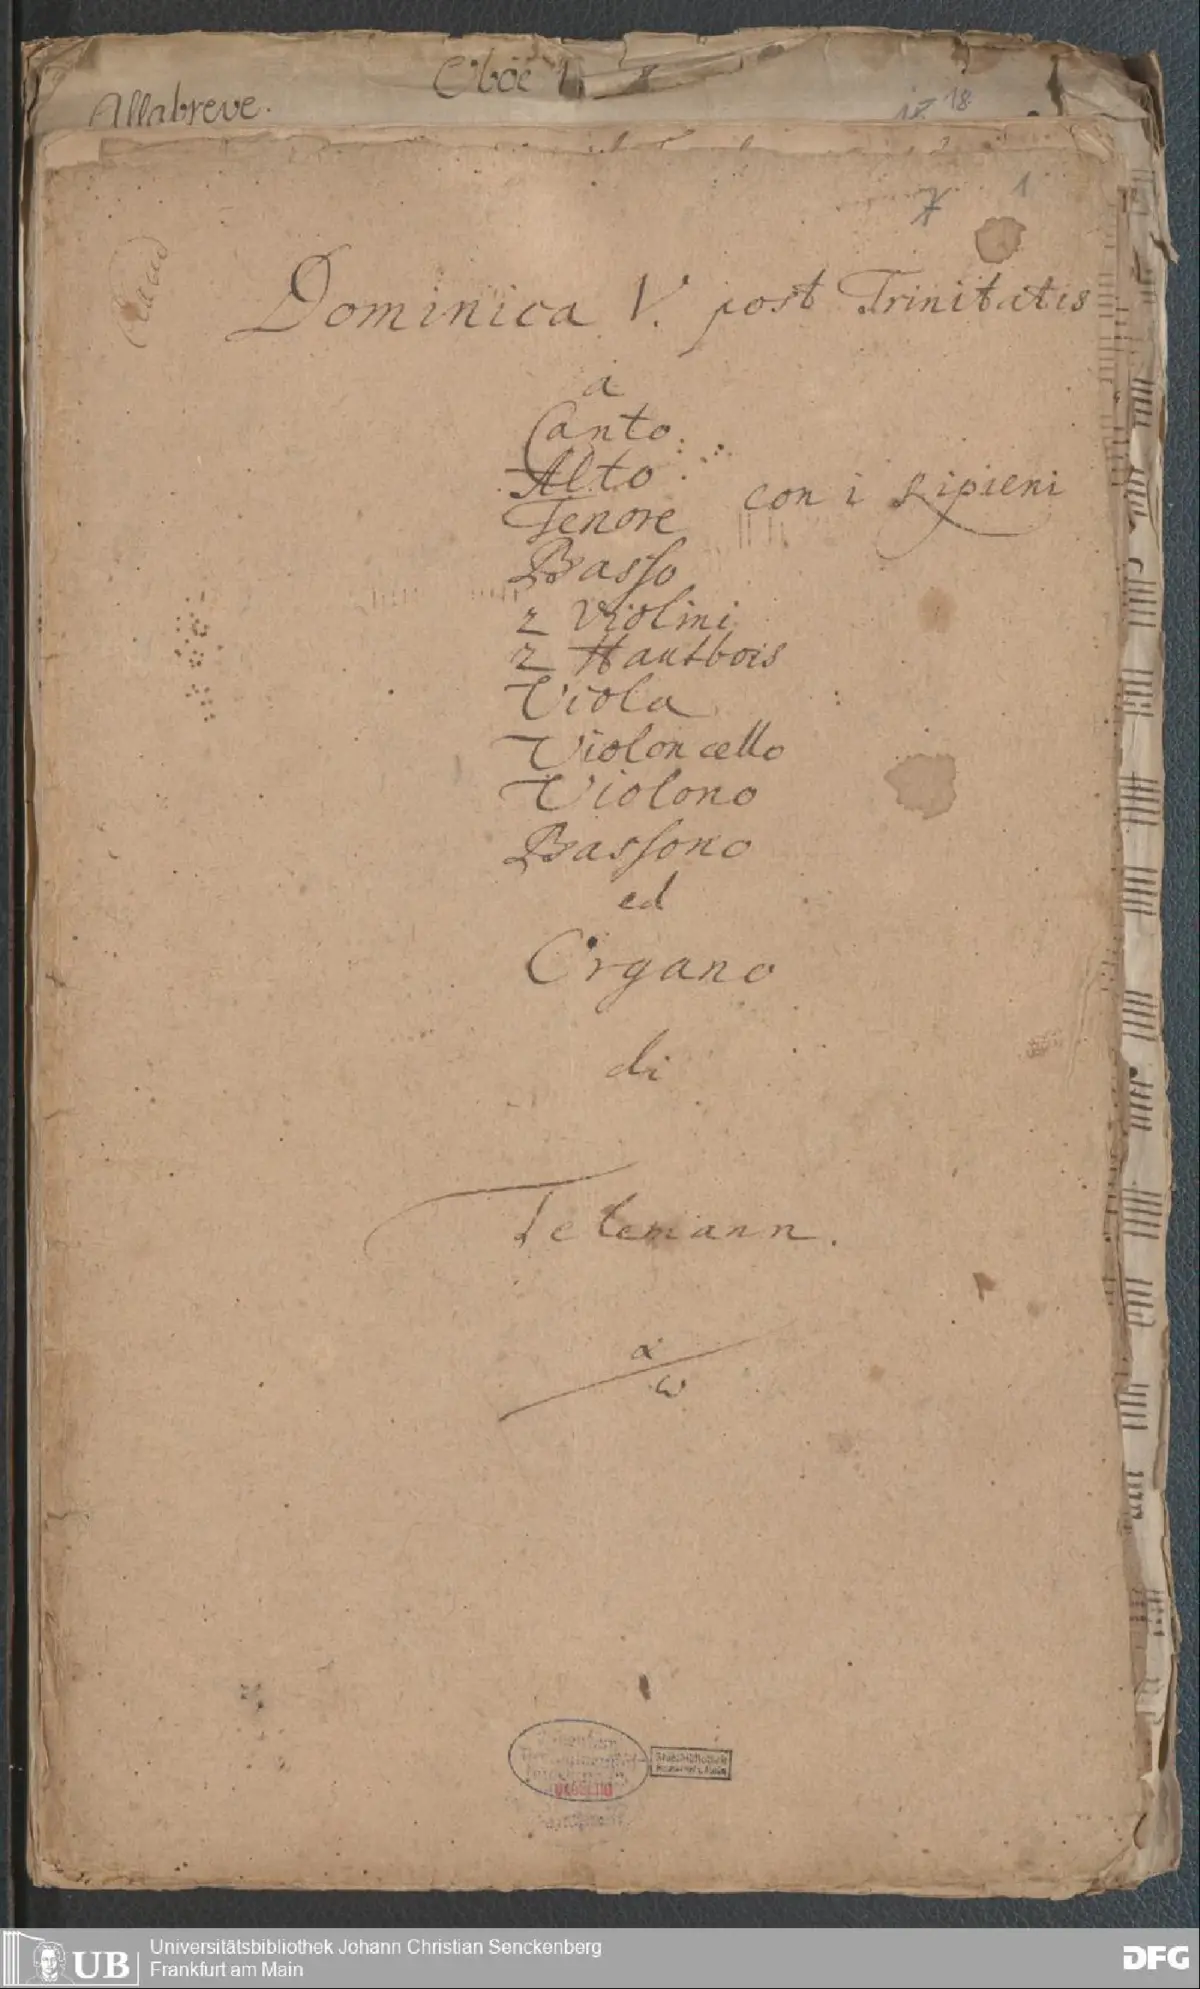 Oboe 1
Allabreve.
18
7 1
Dominica V. post Trinitatis
a
Canto.
Alto
con i Ripieni
Tenore
Basso
2 Violini
2 Hautbois
Viola
Violoncello
Violono
Bassono
ed
Organo
di
Telemann.
α
ω
UB
Universitätsbibliothek Johann Christian Senckenberg
Frankfurt am Main
DFG